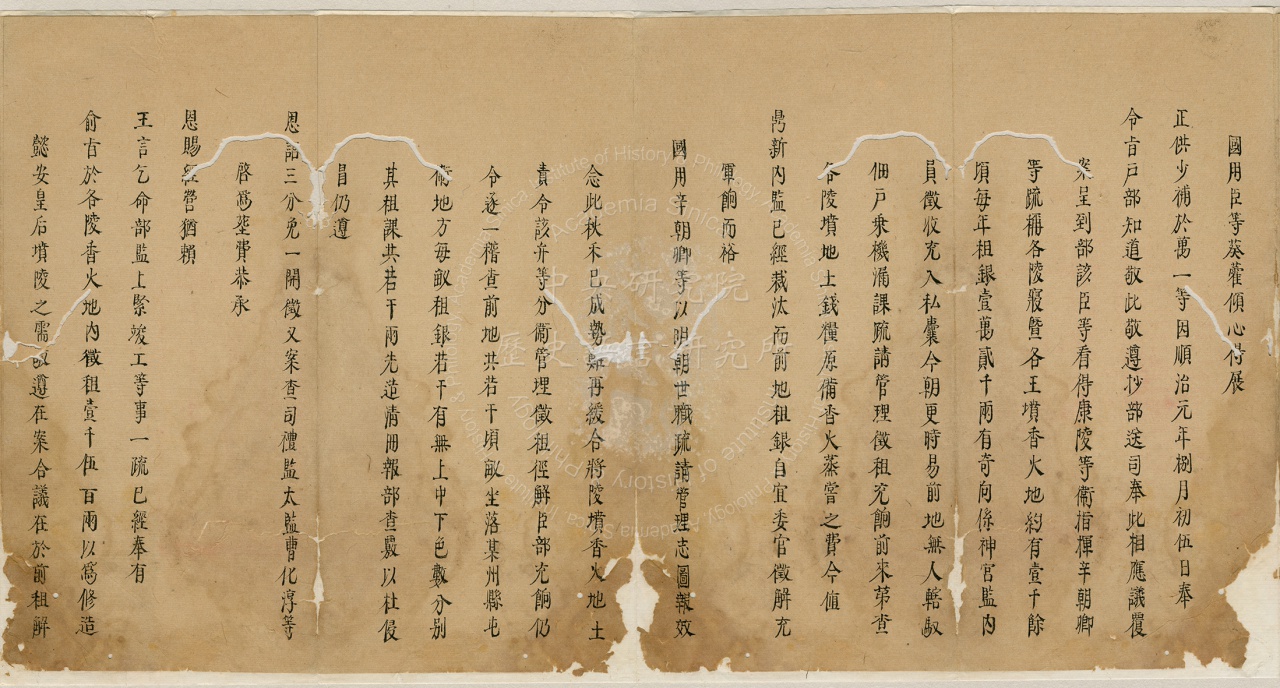 國用臣等葵藿傾心得展
正供少補於萬一等因順治元年捌月初伍日奉
令旨戶部知道敬此敬遵抄部送司奉此相應議覆
案呈到部該臣等看得康陵等衞指揮辛朝卿
等疏稱各陵寢暨各王墳香火地約有壹千餘
頃每年租銀壹萬貳千兩有奇向係神宮監內
員徵收充入私囊今朝更時易前地無人轄馭
佃戶乘機漏課疏請管理徵租充餉前來第查
各陵墳地土錢糧原備香火蒸嘗之費今值
鼎新內監已經裁汰而前地租銀自宜委官徵解充
軍餉而裕
國用辛朝卿等以明朝世職疏請管理志圖報效
念此秋禾已成勢難再緩合將陵墳香火地土
責令該弁等分衞管理徵租徑解臣部充餉仍
令逐一稽查前地共若干頃畝坐落某州縣屯
衞地方每畝租銀若干有無上中下色數分別
其租課共若干兩先造清冊報部查覈以杜侵
冒仍遵
恩詔三分免一開徵又案查司禮監太監曹化淳等
啓為塟費恭承
恩賜經營猶賴
王言乞命部監上緊竣工等事一疏已經奉有
俞旨於各陵香火地內徵租壹千伍百兩以為修造
懿安皇后墳陵之需敬遵在案合議在於前租解
中央研究院
歷史語言研究所
Institute of History & Philology, Academia Sinica